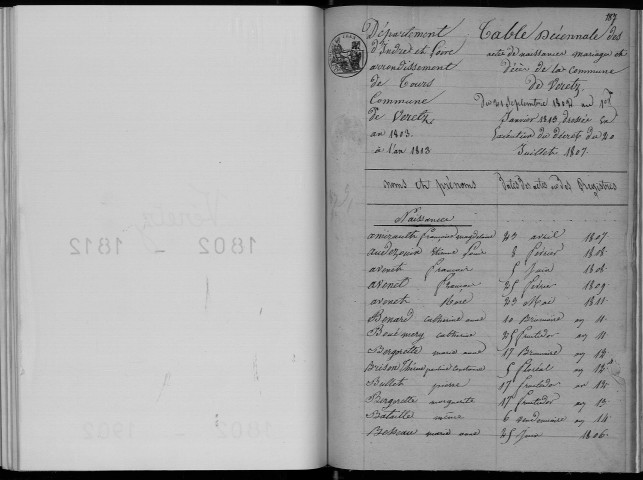 187
Département
d'Indre et Loire
arrondissement
de Tours
Commune
de Veretz
an 1803
à l'an 1813
Table Décennale des
actes de naissances mariages et
Décès de la Commune
de Veretz
Du 21 Septembre 1802 au 1er
Janvier 1813, dressée en
Exécution du décret du 20
Juillet 1807.
noms et prénoms Dates des actes sur les Registres
Naissances
amirault françois 23 avril 1807
étienne 8 février 1808
avenet françois 5 Juin 1808
avenet françois 25 février 1809
avenet 23 Mai 1811
Bonard catherine anne 10 Brumaire an 11
catherine 25 fructidor an 11
Borgnette marie anne 17 Brumaire an 12
Brédon 5 floréal an 12
Bullet pierre 17 fructidor an 12
Bergerette marguerite 17 fructidor an 13
Bataille 6 vendémiaire an 14
Besseau marie anne 25 1806
Veretz
1802 – 1812
1802 – 1902